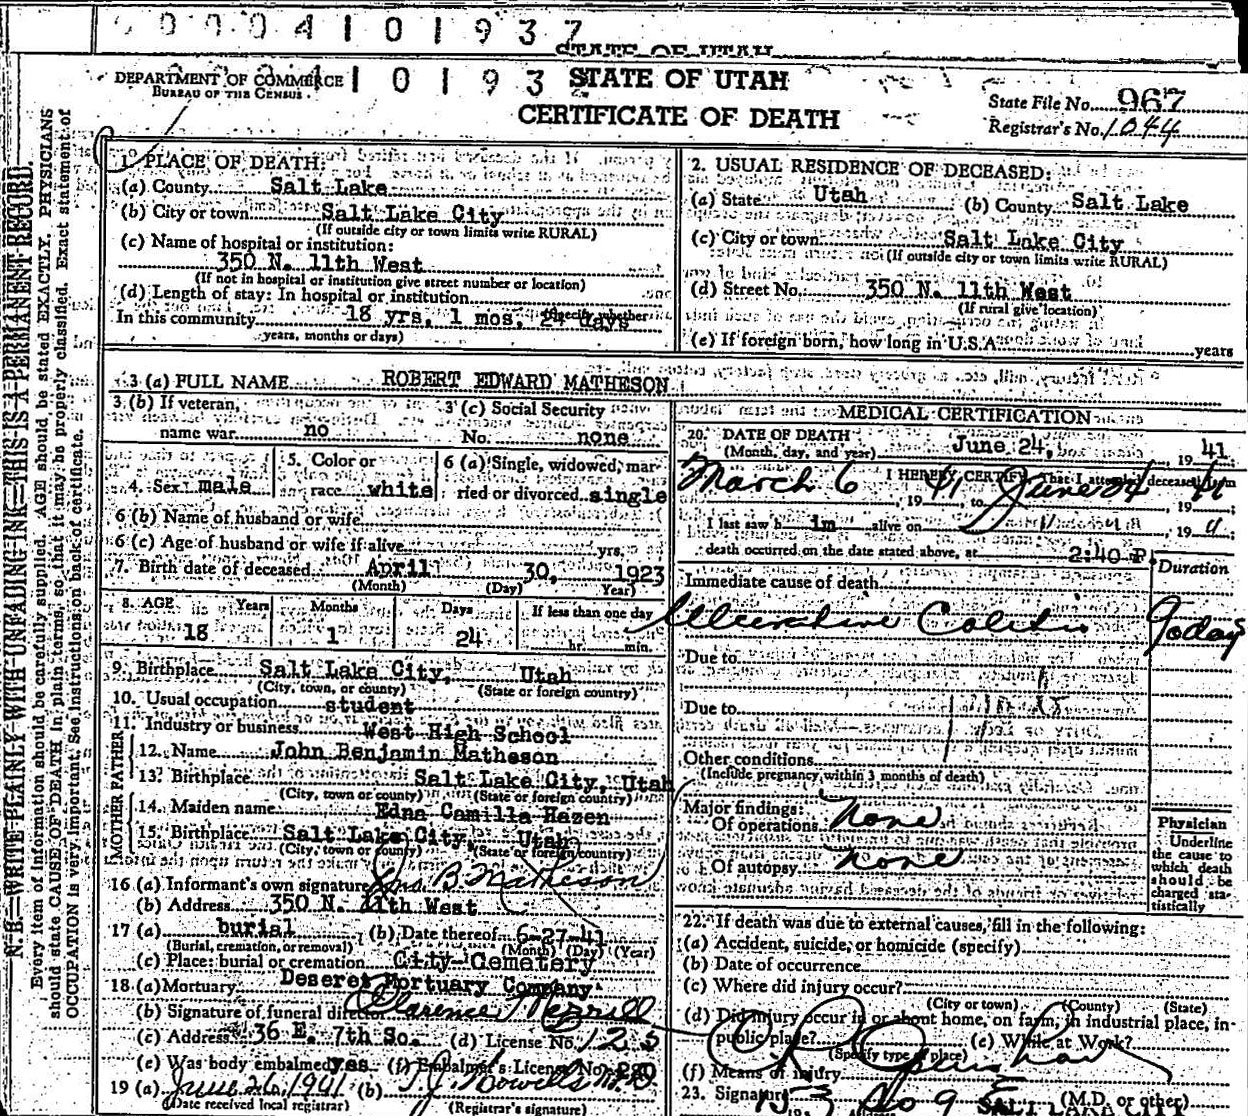 0004101937
STATE OF UTAH
DEPARTMENT OF COMMERCE
BUREAU OF THE CENSUS
10193
STATE OF UTAH
CERTIFICATE OF DEATH
State File No. 967
Registrar's No. 1044
N. B.—WRITE PLAINLY WITH UNFADING INK—THIS IS A PERMANENT RECORD.
Every item of information should be carefully supplied. AGE should be stated EXACTLY. PHYSICIANS
should state CAUSE OF DEATH in plain terms, so that it may be properly classified. Exact statement of
OCCUPATION is very important. See instructions on back of certificate.
1. PLACE OF DEATH:
(a) County Salt Lake
(b) City or town Salt Lake City
(If outside city or town limits write RURAL)
(c) Name of hospital or institution:
350 N. 11th West
(If not in hospital or institution give street number or location)
(d) Length of stay: In hospital or institution
(Specify whether
In this community 18 yrs, 1 mos, 24 days
years, months or days)
2. USUAL RESIDENCE OF DECEASED:
(a) State Utah (b) County Salt Lake
(c) City or town Salt Lake City
(If outside city or town limits write RURAL)
(d) Street No. 350 N. 11th West
(If rural give location)
(e) If foreign born, how long in U.S.A. years
3 (a) FULL NAME ROBERT EDWARD MATHESON
3 (b) If veteran, name war no
3 (c) Social Security No. none
4. Sex male
5. Color or race white
6 (a) Single, widowed, married or divorced single
6 (b) Name of husband or wife
6 (c) Age of husband or wife if alive yrs.
7. Birth date of deceased April 30, 1923
(Month) (Day) Year)
8. AGE Years Months Days If less than one day
18 1 24 hr. min.
9. Birthplace Salt Lake City, Utah
(City, town, or county) (State or foreign country)
10. Usual occupation student
11. Industry or business West High School
FATHER
12. Name John Benjamin Matheson
13. Birthplace Salt Lake City, Utah
(City, town or county) (State or foreign country)
MOTHER
14. Maiden name Edna Camilla Hazen
15. Birthplace Salt Lake City, Utah
(City, town or county) (State or foreign country)
16 (a) Informant's own signature Jno. B. Matheson
(b) Address 350 N. 11th West
17 (a) burial (b) Date thereof 6-27-41
(Burial, cremation, or removal) (Month) (Day) (Year)
(c) Place: burial or cremation City Cemetery
18 (a) Mortuary Deseret Mortuary Company
(b) Signature of funeral director Clarence Merrill
(c) Address 36 E. 7th So. (d) License No. 125
(e) Was body embalmed yes (f) Embalmer's License No. 280
19 (a) June 26, 1941 (b)
(Date received local registrar) (Registrar's signature)
MEDICAL CERTIFICATION
20. DATE OF DEATH
(Month, day, and year) June 24, 19 41
I HEREBY CERTIFY that I attended deceased from
March 6, 19 41, to June 24, 19 41;
I last saw him alive on 19
death occurred on the date stated above, at 2:40 P.
Immediate cause of death Duration
Ulcerative Colitis
Due to
Due to
Other conditions
(Include pregnancy within 3 months of death)
Major findings:
Of operations None
Of autopsy none
Physician
Underline
the cause to
which death
should be
charged statistically
22. If death was due to external causes, fill in the following:
(a) Accident, suicide, or homicide (specify)
(b) Date of occurrence
(c) Where did injury occur?
(City or town) (County) (State)
(d) Did injury occur in or about home, on farm, in industrial place, in
public place? (e) While at Work?
(Specify type of place)
(f) Means of injury
23. Signature (M.D. or other)